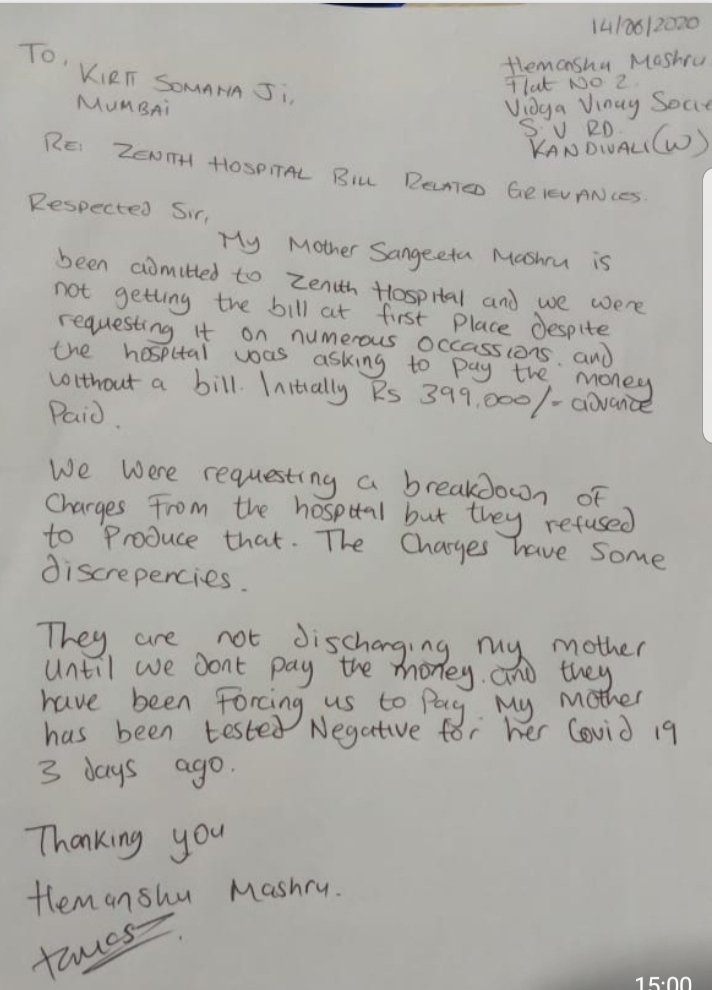 14/06/2020
To,
KIRIT SOMANA Ji,
MUMBAi
Hemanshu Mashru
Flat No 2
Vidya Vinay Socie
S. V RD.
KANDIVALI (W)
RE: ZENITH HOSPITAL BILL RELATED GRIEVANCES.
Respected Sir,
My Mother Sangeeta Mashru is
been admitted to Zenith Hospital and we were
not getting the bill at first Place despite
requesting it on numerous occassions. and
the hospital was asking to pay the money
without a bill. Initially Rs 399,000/- advance
Paid.
We were requesting a breakdown of
Charges From the hospital but they refused
to Produce that. The Charges have Some
discrepencies.
They are not discharging my mother
until we dont pay the money. and they
have been Forcing us to Pay. My Mother
has been tested Negative for her Covid 19
3 days ago.
Thanking you
Hemanshu Mashru.
15:00